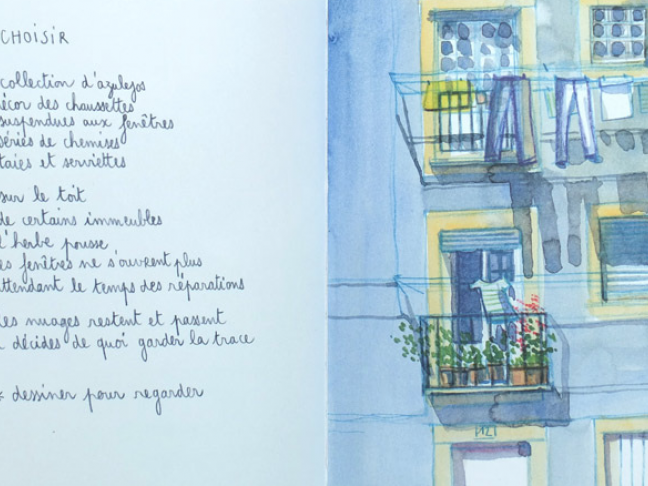 CHOISIR
collection d'azulejos
décor des chaussettes
suspendues aux fenêtres
séries de chemises
taies et serviettes
sur le toit
de certains immeubles
l'herbe pousse
les fenêtres ne s'ouvrent plus
attendant le temps des réparations
les nuages restent et passent
décides de quoi garder la trace
* dessiner pour regarder